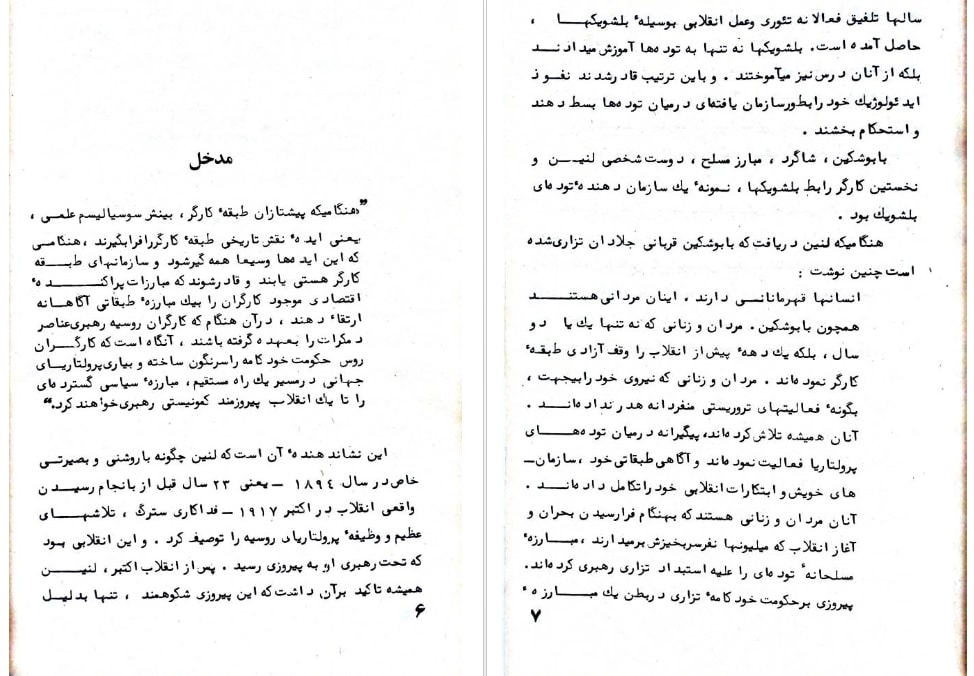 مدخل
”هنگامیکه پیشتازان طبقهٔ کارگر، بینش سوسیالیسم علمی ،
یعنی ایدهٔ نقش تاریخی طبقهٔ کارگررافرابگیرند ، هنگامی
که این ایده‌ها وسیعا همه گیرشود و سازمانهای طبـــقه
کارگر هستی یابند و قادرشوند که مبارزات پراکنـــــدهٔ
اقتصادی موجود کارگران را بیك مبارزهٔ طبقاتی آگاهـانه
ارتقاء دهند ، درآن هنگام که کارگران روسیه رهبری‌عناصر
دمکرات را بعهده گرفته باشند ، آنگاه است که کارگــران
روس حکومت خودکامه راسرنگون ساخته و بیاری‌پرولتاریــای
جهانی درمسیر یك راه مستقیم، مبارزهٔ سیاسی گسترده‌ای
را تا یك انقلاب پیروزمند کمونیستی رهبری‌خواهند کرد.“
این نشاندهندهٔ آن است که لنین چگونه باروشنی و بصیرتـی
خاص درسال ۱۸۹٤ ــ یعنی ۲۳ سال قبل از بانجام رسیـدن
واقعی انقلاب در اکتبر ۱۹۱۷ ــ فداکاری سترگ ، تلاشهـــای
عظیم و وظیفهٔ پرولتاریای روسیه را توصیف کرد . و این انقلابی بود
که تحت رهبری او به پیروزی رسید . پس از انقلاب اکتبر، لنیـــن
همیشه تاکید برآن داشت که این پیروزی شکوهمند ، تنها بدلیل
۶
سالها تلفیق فعالانه تئوری وعمل انقلابی بوسیلهٔ بلشویکهــا ،
حاصل آمده است. بلشویکها نه تنها به توده‌ها آموزش میدادنــد
بلکه از آنان درس نیز میآموختند . و باین ترتیب قادرشدند نفـوذ
ایدئولوژیك خود را بطورسازمان یافته‌ای درمیان توده‌ها بسط دهند
و استحکام بخشند .
بابوشکین ، شاگرد ، مبارز مسلح ، دوست شخصی لنیـــن و
نخستین کارگر رابط بلشویکها ، نمونهٔ یك سازمان دهندهٔ توده‌ای
بلشویك بود .
هنگامیکه لنین دریافت که بابوشکین قربانی جلادان تزاری‌شده
است چنین نوشت :
انسانها قهرمانانـی دارند ، اینان مردانی هستنــــد
همچون بابوشکین. مردان و زنانی که نه تنها یك یا دو
سال ، بلکه یك دههٔ پیش از انقلاب را وقف آزادی طبقهٔ
کارگر نموده‌اند . مردان و زنانی که نیروی خود رابیجهت ،
بگونهٔ فعالیتهای تروریستی منفردانه هدر نداده‌انــــد .
آنان همیشه تلاش کرده‌اند، پیگیرانه درمیان توده‌هـــای
پرولتاریا فعالیت نموده‌اند و آگاهی طبقاتی خود ، سازمان‌ـ
های خویش و ابتکارات انقلابی خود راتکامل داده‌انــــد .
آنان مردان و زنانی هستند که بهنگام فرارسیدن بحران و
آغاز انقلاب که میلیونها نفرسربخیزش برمیدارند ، مبــارزهٔ
مسلحانهٔ توده‌ای را علیه استبداد تزاری رهبری کرده‌اند.
پیروزی برحکومت خودکامهٔ تزاری دربطن یك مبـــارزهٔ
۷